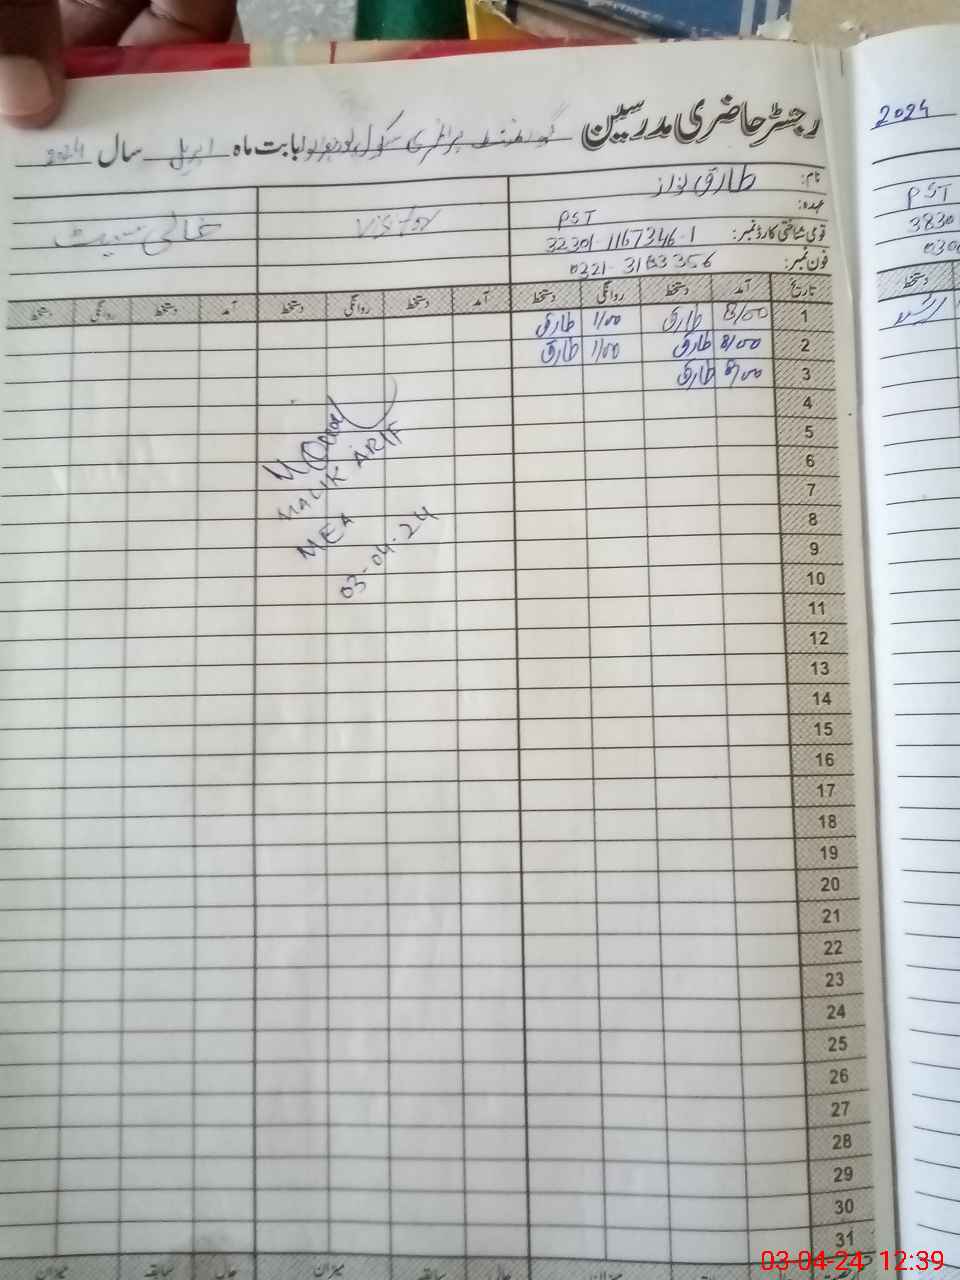 رجسٹر حاضری مدرسین گورنمنٹ پرائمری سکول بابت ماہ اپریل سال 2024
نام: طارق نواز
عہدہ: PST
قومی شناختی کارڈ نمبر: 32301-1167346-1
فون نمبر: 0321-3183356
Visitor
خالی سیٹ
تاریخ آمد دستخط روانگی دستخط آمد دستخط روانگی دستخط آمد دستخط روانگی دستخط
1 8/00 طارق 1/00 طارق
2 8/00 طارق 1/00 طارق
3 8/00 طارق
4
5
6
7
8
9
10
11
12
13
14
15
16
17
18
19
20
21
22
23
24
25
26
27
28
29
30
31
MALIK ARIF
MEA
03-04-24
میزان سابقہ حال میزان سابقہ حال میزان
2024
PST
3830
030
دستخط
03-04-24 12:39